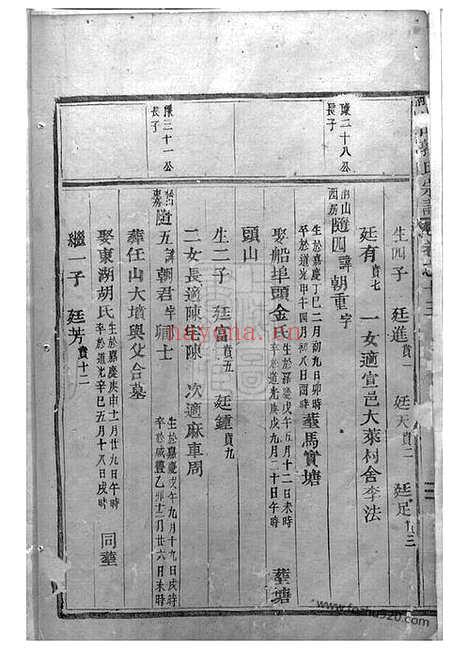 生四子 廷進賁一 廷天賁二 廷足賁三
廷有賁七 一女適宣邑大萊村舍李法
陳二十八公長子
南山西房隨四諱朝重字
生於嘉慶丁巳二月前九日卯時
卒於道光甲午四月初八日酉時 葬馬實塘
娶船埠頭金氏 生於嘉慶戊午五月十二日未時
卒於道光庚戌九月二十日午時 葬塘
頭山
生二子 廷富賁五 廷鍾賁九
二女長適陳生陳 次適麻車周
陳三十一公長子
隨五諱朝君字瑞士 生於嘉慶戊午九月十九日戌時
卒於咸豐乙卯十二月廿六日未時
葬任山大墳與父合墓
娶東湖胡氏 生於嘉慶庚申十一月廿九日午時
卒於道光辛巳五月十八日戌時 同葬
繼一子 廷芳賁十二
hayema.cn
www.foshu920.com